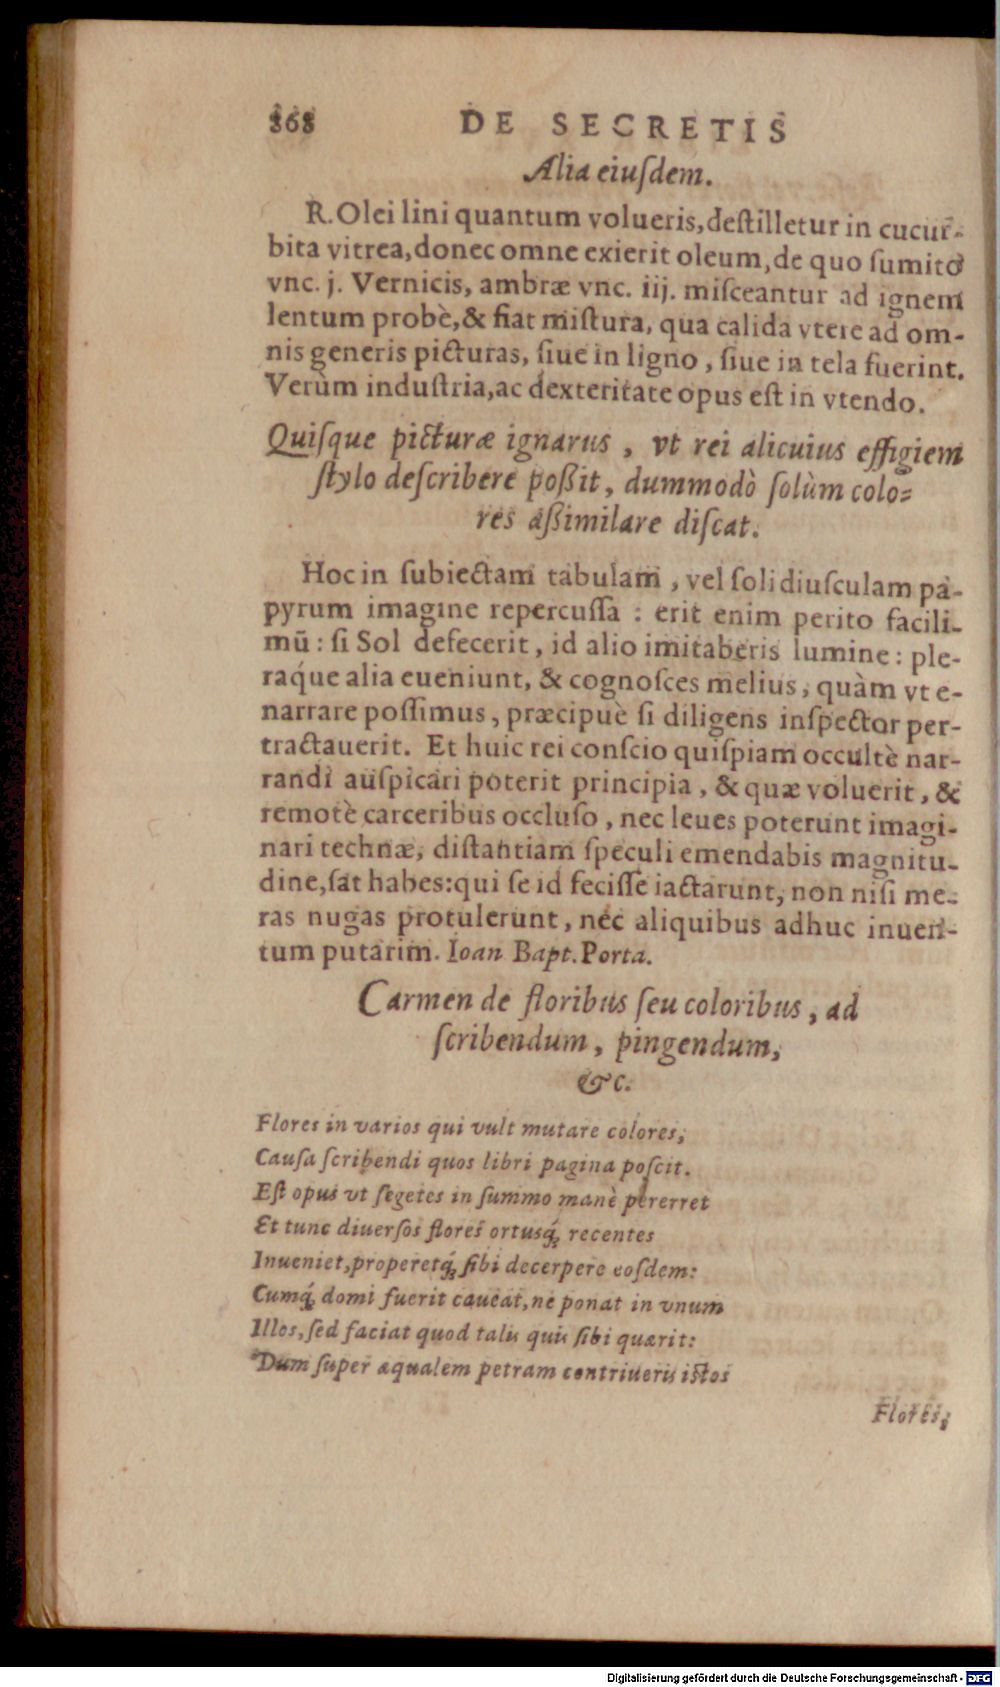 868 DE SECRETIS
Alia eiuſdem.
R. Olei lini quantum volueris, deſtilletur in cucur-
bita vitrea, donec omne exierit oleum, de quo ſumito
vnc. j. Vernicis, ambræ vnc. iij. miſceantur ad ignem
lentum probè, & fiat miſtura, qua calida vtere ad om-
nis generis picturas, ſiue in ligno, ſiue in tela fuerint.
Verùm induſtria, ac dexteritate opus eſt in vtendo.
Quiſque picturæ ignarus, vt rei alicuius effigiem
ſtylo deſcribere poßit, dummodò ſolùm colo-
res aßimilare diſcat.
Hoc in ſubiectam tabulam, vel ſolidiuſculam pa-
pyrum imagine repercuſſa: erit enim perito facili-
mū: ſi Sol defecerit, id alio imitaberis lumine: ple-
raque alia eueniunt, & cognoſces melius, quàm vt e-
narrare poſſimus, præcipuè ſi diligens inſpector per-
tractauerit. Et huic rei conſcio quiſpiam occultè nar-
randi auſpicari poterit principia, & quæ voluerit, &
remotè carceribus occluſo, nec leues poterunt imagi-
nari technæ, diſtantiam ſpeculi emendabis magnitu-
dine, ſat habes: qui ſe id feciſſe iactarunt, non niſi me-
ras nugas protulerunt, nec aliquibus adhuc inuen-
tum putarim. Ioan Bapt. Porta.
Carmen de floribus ſeu coloribus, ad
ſcribendum, pingendum,
&c.
Flores in varios qui vult mutare colores,
Cauſa ſcribendi quos libri pagina poſcit.
Eſt opus vt ſegetes in ſummo manè pererret
Et tunc diuerſos flores ortusq́; recentes
Inueniet, properetq́; ſibi decerpere eoſdem:
Cumq́; domi fuerit caueat, ne ponat in vnum
Illos, ſed faciat quod talis quis ſibi quærit:
Dum ſuper æqualem petram contriueris iſtos
Flores,
Digitalisierung gefördert durch die Deutsche Forschungsgemeinschaft - DFG